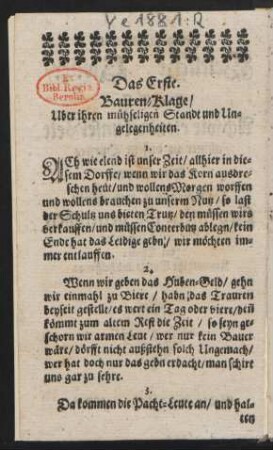 Ye 1881:R
Ex
Bibl. Regia
Berolin.
Das Erste.
Bauren-Klage/
Uber ihren mühseligen Stande und Un-
gelegenheiten.
1.
ACh wie elend ist unser Zeit/ allhier in die-
sem Dorffe/ wenn wir das Korn ausdre-
schen heüt/ und wollens Morgen worffen
und wollens brauchen zu unserm Nutz/ so last
der Schultz uns bieten Trutz/ den müssen wirs
verkauffen/ und müssen Conterbutz ablegn/ kein
Ende hat das Leidige gebn/ wir möchten im-
mer entlauffen.
2.
Wenn wir geben das Huben-Geld/ gehn
wir einmahl zu Biere/ habn das Trauren
beyseit gestelle/ es wert ein Tag oder viere/ deñ
kömmt zum altem Rest die Zeit/ so seyn ge-
schorn wir armen Leut/ wer nur kein Bauer
wäre/ dörfft nicht außstehn solch Ungemach/
wer hat doch nur das gebn erdacht/ man schirt
uns gar zu sehre.
3.
Da kommen die Pacht-Leute an/ und hal-
ten